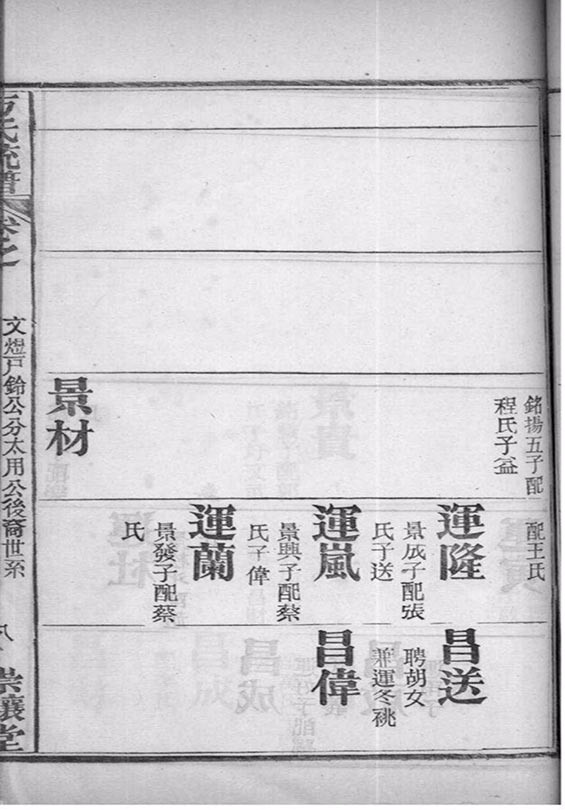 銘揚五子配
程氏子益
景材
配王氏
運隆
景成子配張
氏子送
運嵐
景興子配蔡
氏子偉
運蘭
景發子配蔡
氏
昌送
聘胡女
兼運冬祧
昌偉
氏流譜
卷之
文煜戶鈴公分太用公後裔世系
八
堂